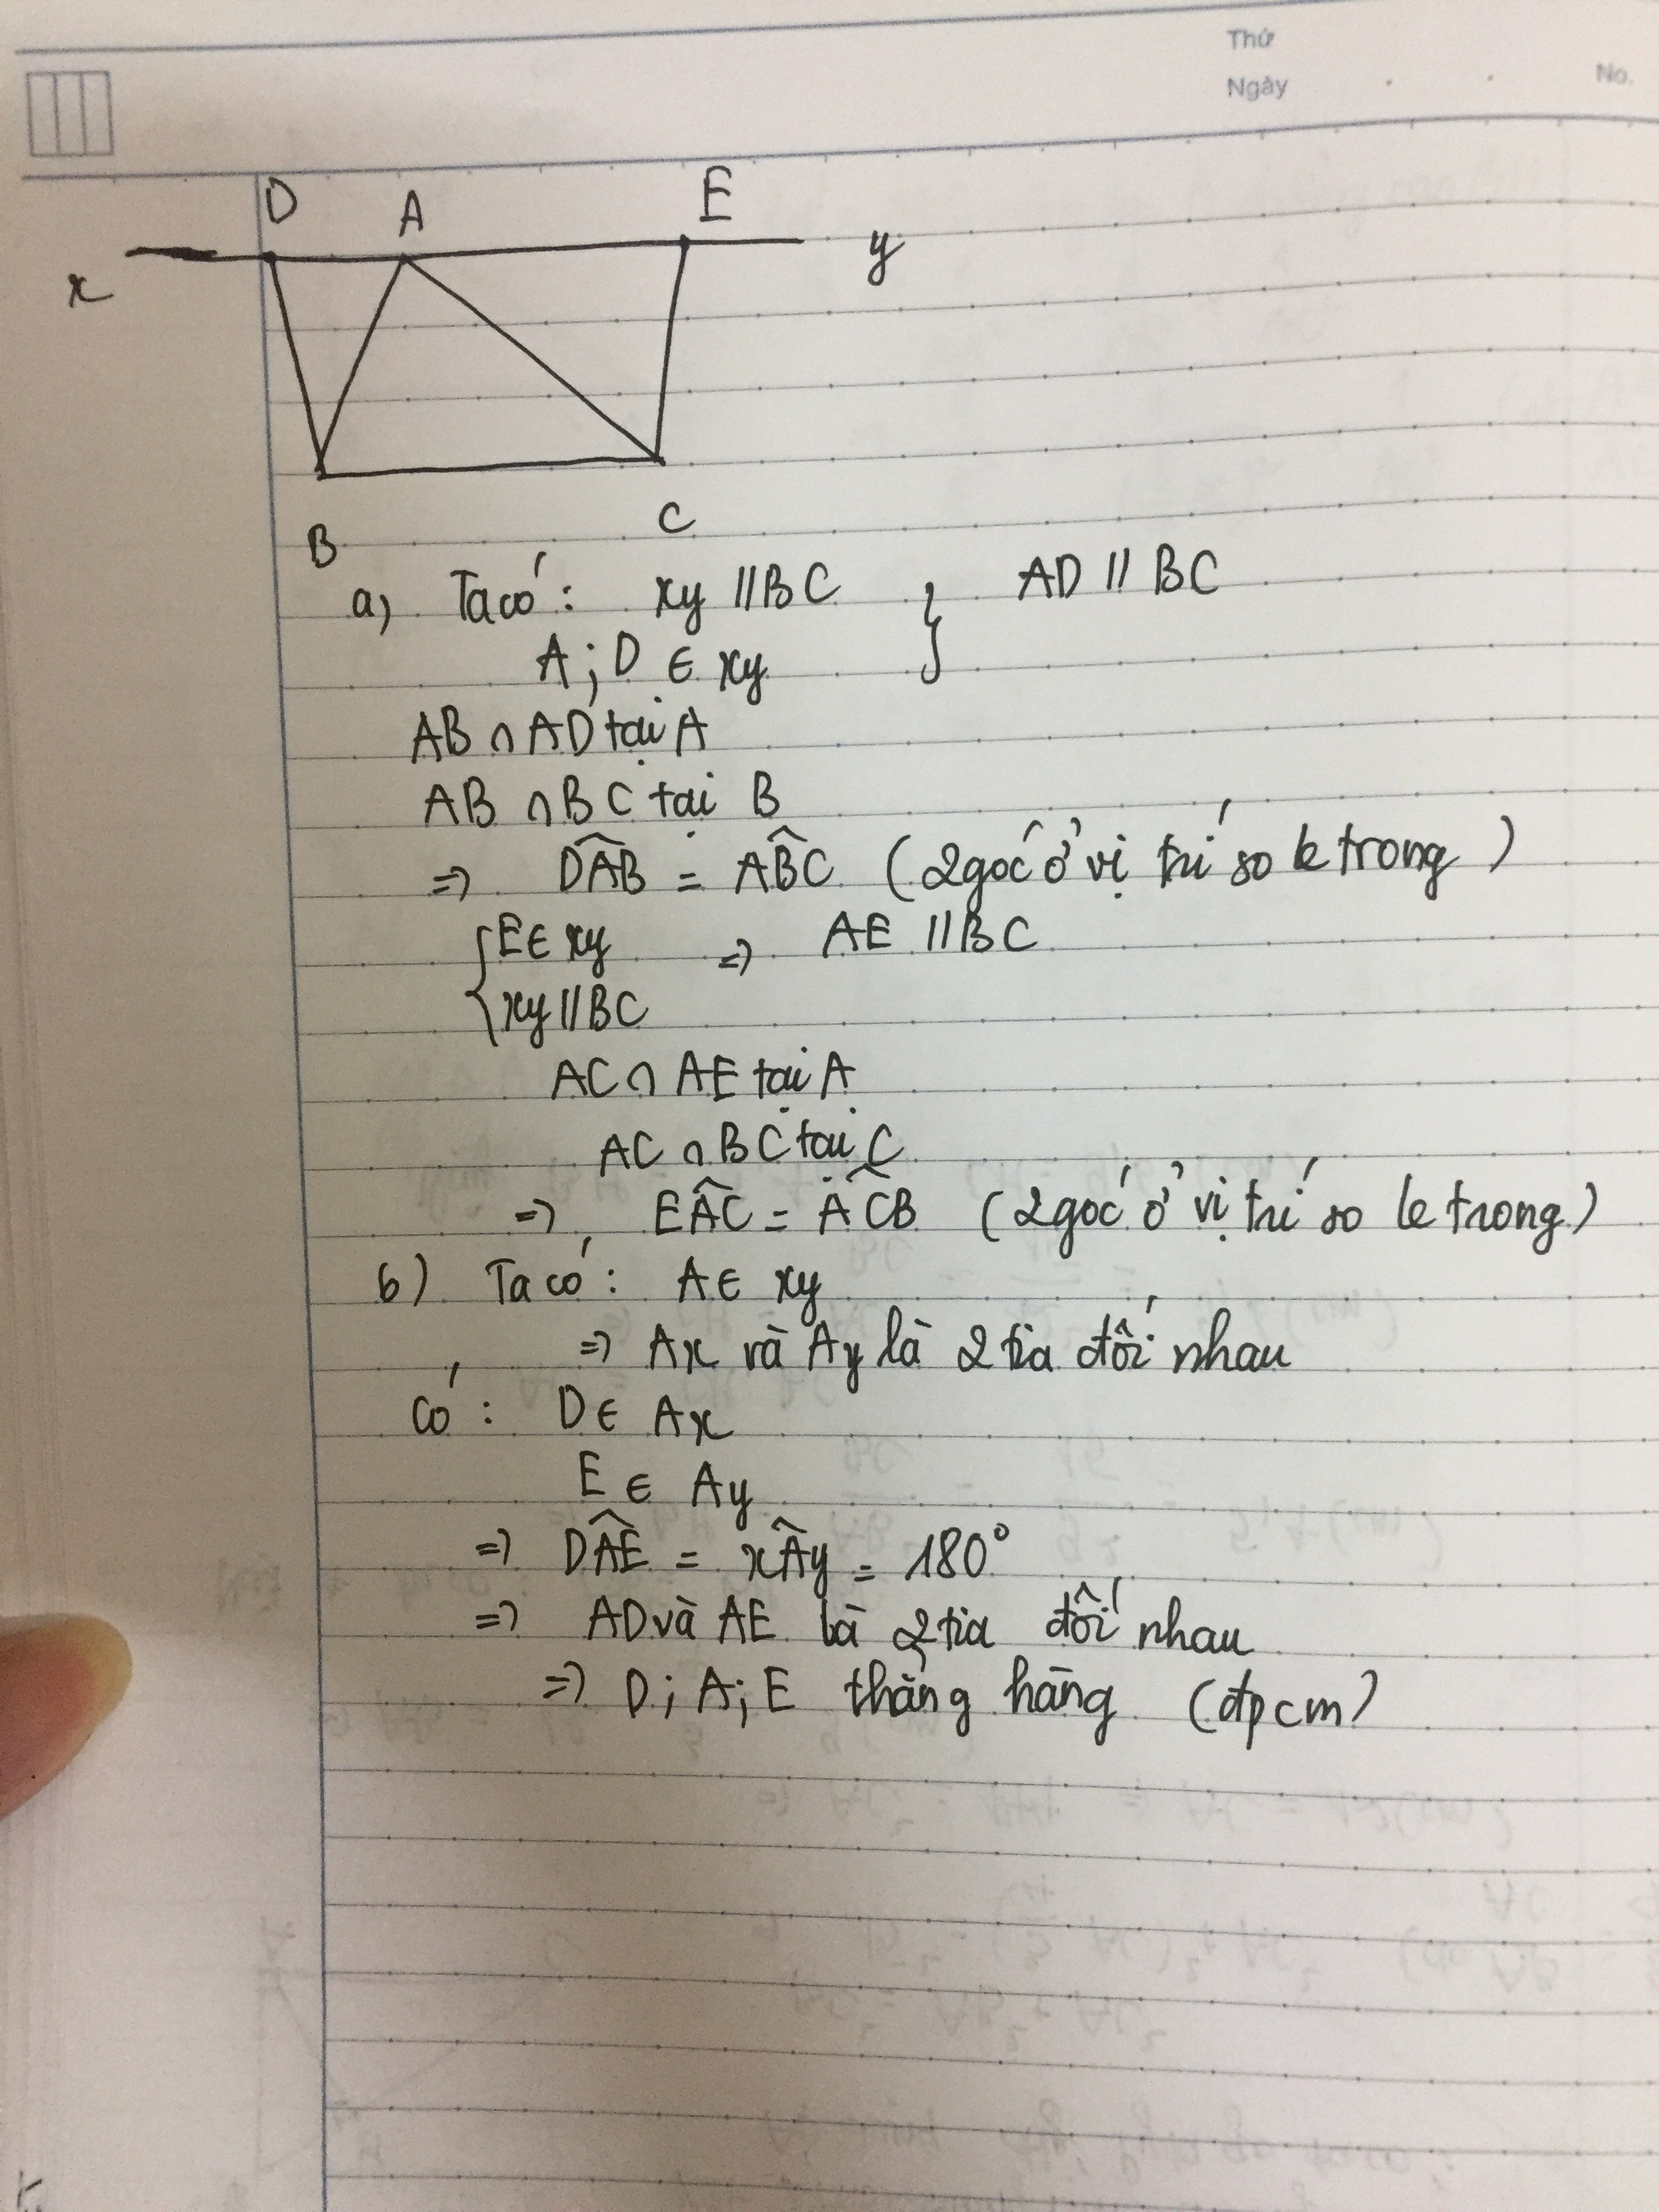 Thứ
Ngày
No.
D A E
x y
B C
a) Ta có: xy // BC } AD // BC
A; D ∈ xy
AB ∩ AD tại A
AB ∩ BC tại B
=> DÂB = AB̂C (2 góc ở vị trí so le trong)
{ E ∈ xy => AE // BC
xy // BC
AC ∩ AE tại A
AC ∩ BC tại C
=> EÂC = AĈB (2 góc ở vị trí so le trong)
b) Ta có: A ∈ xy
=> Ax và Ay là 2 tia đối nhau
Có: D ∈ Ax
E ∈ Ay
=> DÂE = xÂy = 180°
=> AD và AE là 2 tia đối nhau
=> D; A; E thẳng hàng (đpcm)